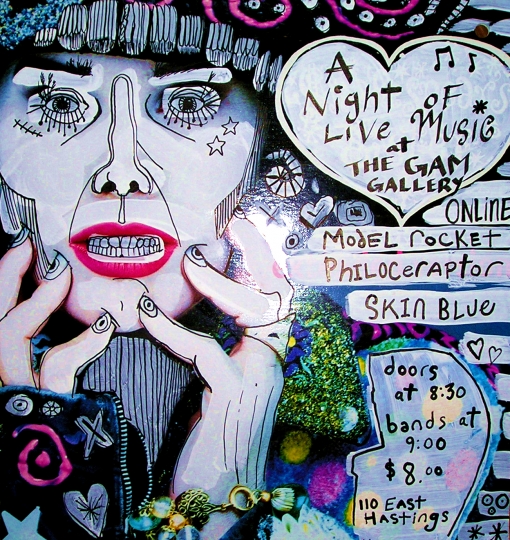 A
Night of
Live Music
at
THE GAM
GALLERY
ONLINE
MODEL rocket
PHILOCERAPTOR
SKIN BLUE
doors
at 8:30
bands at
9:00
$8.00
110 EAST
HASTINGS